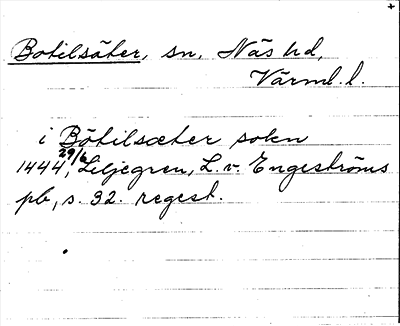 Botilsäter, sn, Näs hd,
Värml. l.
i Bötilsæter sokn
1444 29/6, Liljegren, L. v. Engeströms
pb, s. 32. regest.